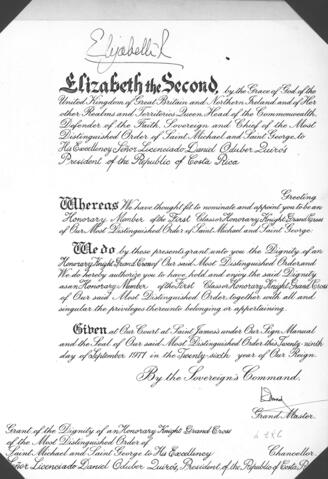 Elizabeth R
Elizabeth the Second, by the Grace of God of the
United Kingdom of Great Britain and Northern Ireland and of Her
other Realms and Territories Queen, Head of the Commonwealth,
Defender of the Faith, Sovereign and Chief of the Most
Distinguished Order of Saint Michael and Saint George, to
His Excellency Señor Licenciado Daniel Oduber Quirós
President of the Republic of Costa Rica
Greeting
Whereas We have thought fit to nominate and appoint you to be an
Honorary Member of the First Class or Honorary Knight Grand Cross
of Our Most Distinguished Order of Saint Michael and Saint George.
We do by these presents grant unto you the Dignity of an
Honorary Knight Grand Cross of Our said Most Distinguished Order and
We do hereby authorize you to have, hold and enjoy the said Dignity
as an Honorary Member of the First Class or Honorary Knight Grand Cross
of Our said Most Distinguished Order, together with all and
singular the privileges thereunto belonging or appertaining.
Given at Our Court at Saint James's under Our Sign Manual
and the Seal of Our said Most Distinguished Order this Twenty-ninth
day of September 1977 in the Twenty-sixth year of Our Reign.
By the Sovereign's Command.
Grand Master.
Grant of the Dignity of an Honorary Knight Grand Cross
of the Most Distinguished Order of
Saint Michael and Saint George to His Excellency Chancellor.
Señor Licenciado Daniel Oduber Quirós, President of the Republic of Costa